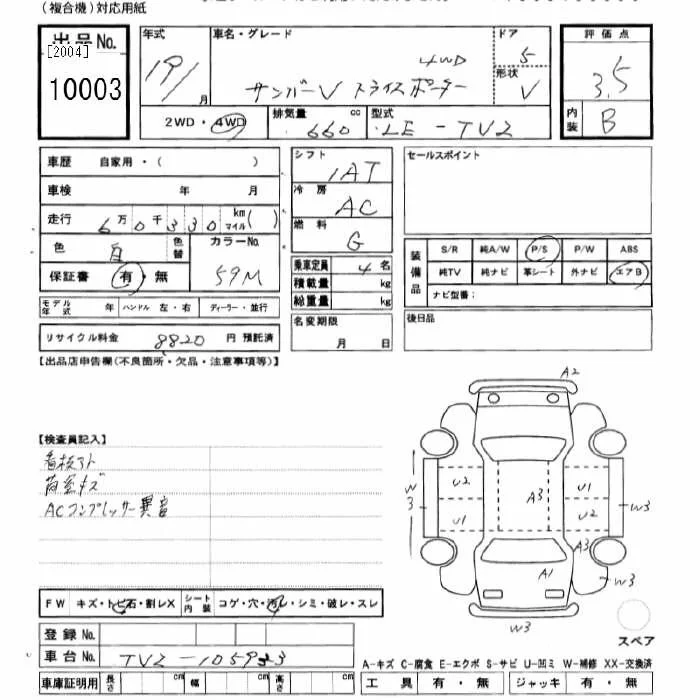 （複合機）対応用紙
出品No.
[2004]
10003
年式
19/
月
車名・グレード
4WD
サンバーV トライスポーター
ドア
5
形状
V
2WD・4WD
排気量
660
cc
型式
LE-TV2
評価点
3.5
内装
B
車歴 自家用・（ ）
車検 年 月
走行 6万0千330 km マイル( )
色 白 色替
カラーNo.
59M
保証書 有・無
モデル年式 年 ハンドル 左・右 ディーラー・並行
リサイクル料金 8820 円 預託済
シフト
IAT
冷房
AC
燃料
G
乗車定員 4 名
積載量 kg
総重量 kg
名変期限
月 日
セールスポイント
装備品
S/R 純A/W P/S P/W ABS
純TV 純ナビ 革シート 外ナビ エアB
ナビ型番：
後日品
【出品店申告欄(不良箇所・欠品・注意事項等)】
【検査員記入】
看板アト
荷室キズ
ACコンプレッサー異音
FW キズ・トビ石・割レX
シート内装 コゲ・穴・汚レ・シミ・破レ・スレ
登録No.
車台No. TV2-105933
車庫証明用 長さ cm 幅 cm 高さ cm
A2
W3
U2
U1
A3
U1
U2
W3
A3
A1
W3
W3
スペア
A-キズ C-腐食 E-エクボ S-サビ U-凹ミ W-補修 XX-交換済
工具 有・無 ジャッキ 有・無